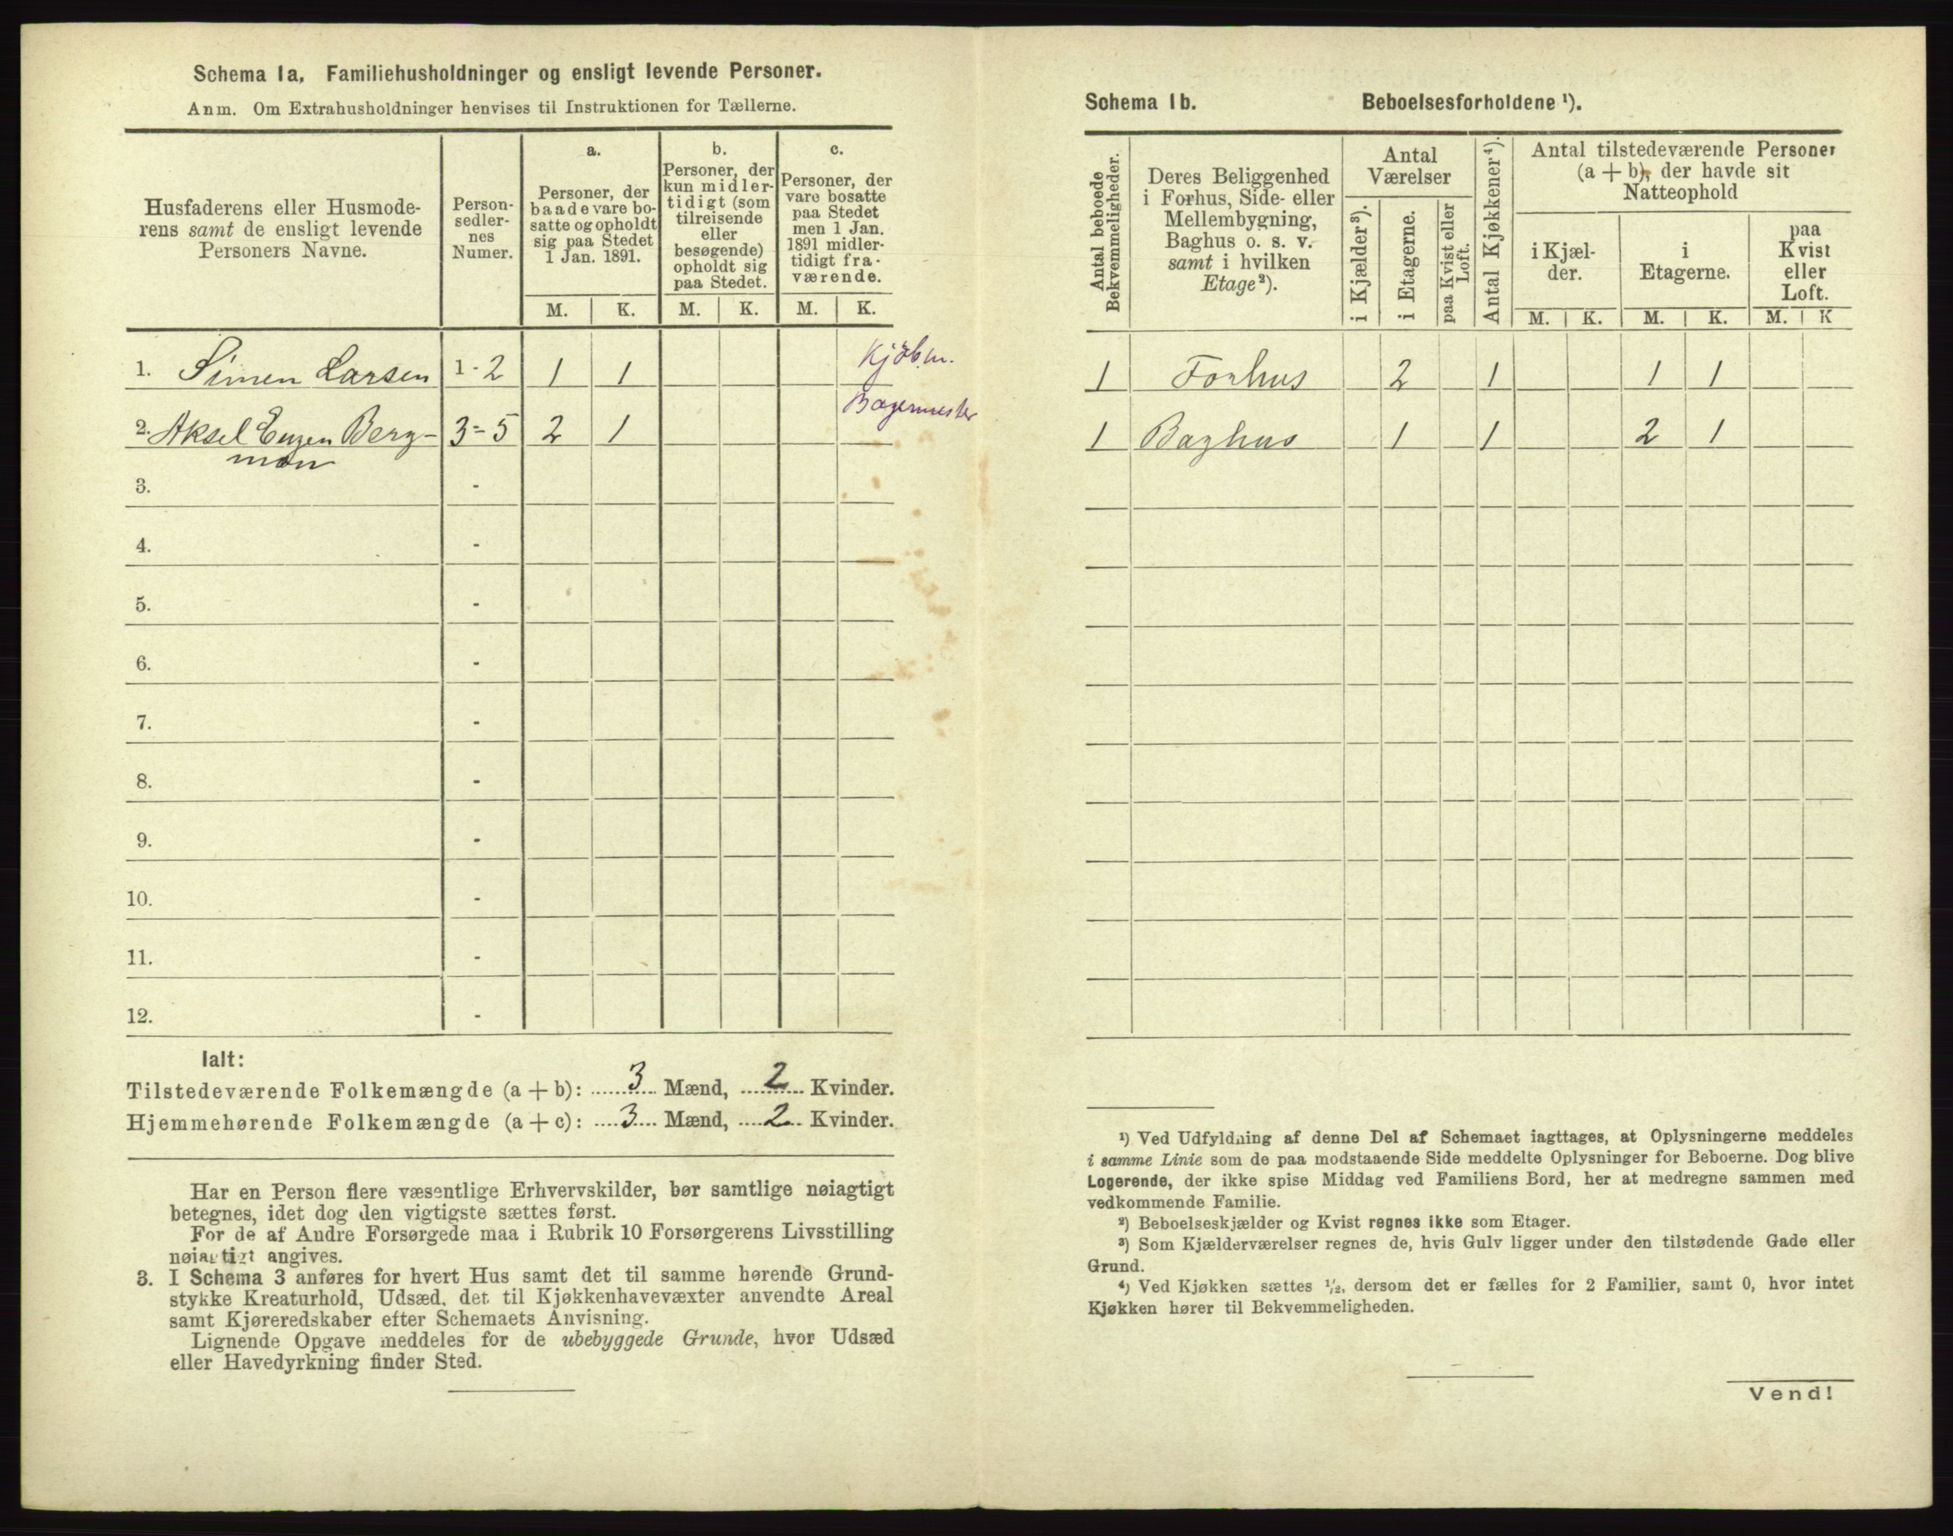 Schema 1a. Familiehusholdninger og ensligt levende Personer.
Anm. Om Extrahusholdninger henvises til Instruktionen for Tællerne.
Husfaderens eller Husmoderens samt de ensligt levende Personers Navne.
Personsedlernes Numer.
a.
Personer, der baade vare bosatte og opholdt sig paa Stedet 1 Jan. 1891.
b.
Personer, der kun midlertidigt (som tilreisende eller besøgende) opholdt sig paa Stedet.
c.
Personer, der vare bosatte paa Stedet men 1 Jan. 1891 midlertidigt fraværende.
M. K. M. K. M. K.
1. Simen Larsen 1-2 1 1 Kjøbm.
2. Aksel Eugen Berg- 3-5 2 1 Bagermester
man
3. -
4. -
5. -
6. -
7. -
8. -
9. -
10. -
11. -
12. -
Ialt:
Tilstedeværende Folkemængde (a + b): 3 Mænd, 2 Kvinder.
Hjemmehørende Folkemængde (a + c): 3 Mænd, 2 Kvinder.
Har en Person flere væsentlige Erhvervskilder, bør samtlige nøiagtigt
betegnes, idet dog den vigtigste sættes først.
For de af Andre Forsørgede maa i Rubrik 10 Forsørgerens Livsstilling
nøiagtigt angives.
3. I Schema 3 anføres for hvert Hus samt det til samme hørende Grund-
stykke Kreaturhold, Udsæd, det til Kjøkkenhavevæxter anvendte Areal
samt Kjøreredskaber efter Schemaets Anvisning.
Lignende Opgave meddeles for de ubebyggede Grunde, hvor Udsæd
eller Havedyrkning finder Sted.
Schema 1b. Beboelsesforholdene ¹).
Antal beboede Bekvemmeligheder.
Deres Beliggenhed i Forhus, Side- eller Mellembygning, Baghus o. s. v. samt i hvilken Etage²).
Antal Værelser
i Kjælder³).
i Etagerne.
paa Kvist eller Loft.
Antal Kjøkkener⁴).
Antal tilstedeværende Personer (a + b), der havde sit Natteophold
i Kjælder.
i Etagerne.
paa Kvist eller Loft.
M. K. M. K. M. K
1 Forhus 2 1 1 1
1 Baghus 1 1 2 1
¹) Ved Udfyldning af denne Del af Schemaet iagttages, at Oplysningerne meddeles
i samme Linie som de paa modstaaende Side meddelte Oplysninger for Beboerne. Dog blive
Logerende, der ikke spise Middag ved Familiens Bord, her at medregne sammen med
vedkommende Familie.
²) Beboelseskjælder og Kvist regnes ikke som Etager.
³) Som Kjælderværelser regnes de, hvis Gulv ligger under den tilstødende Gade eller
Grund.
⁴) Ved Kjøkken sættes ½, dersom det er fælles for 2 Familier, samt 0, hvor intet
Kjøkken hører til Bekvemmeligheden.
Vend!